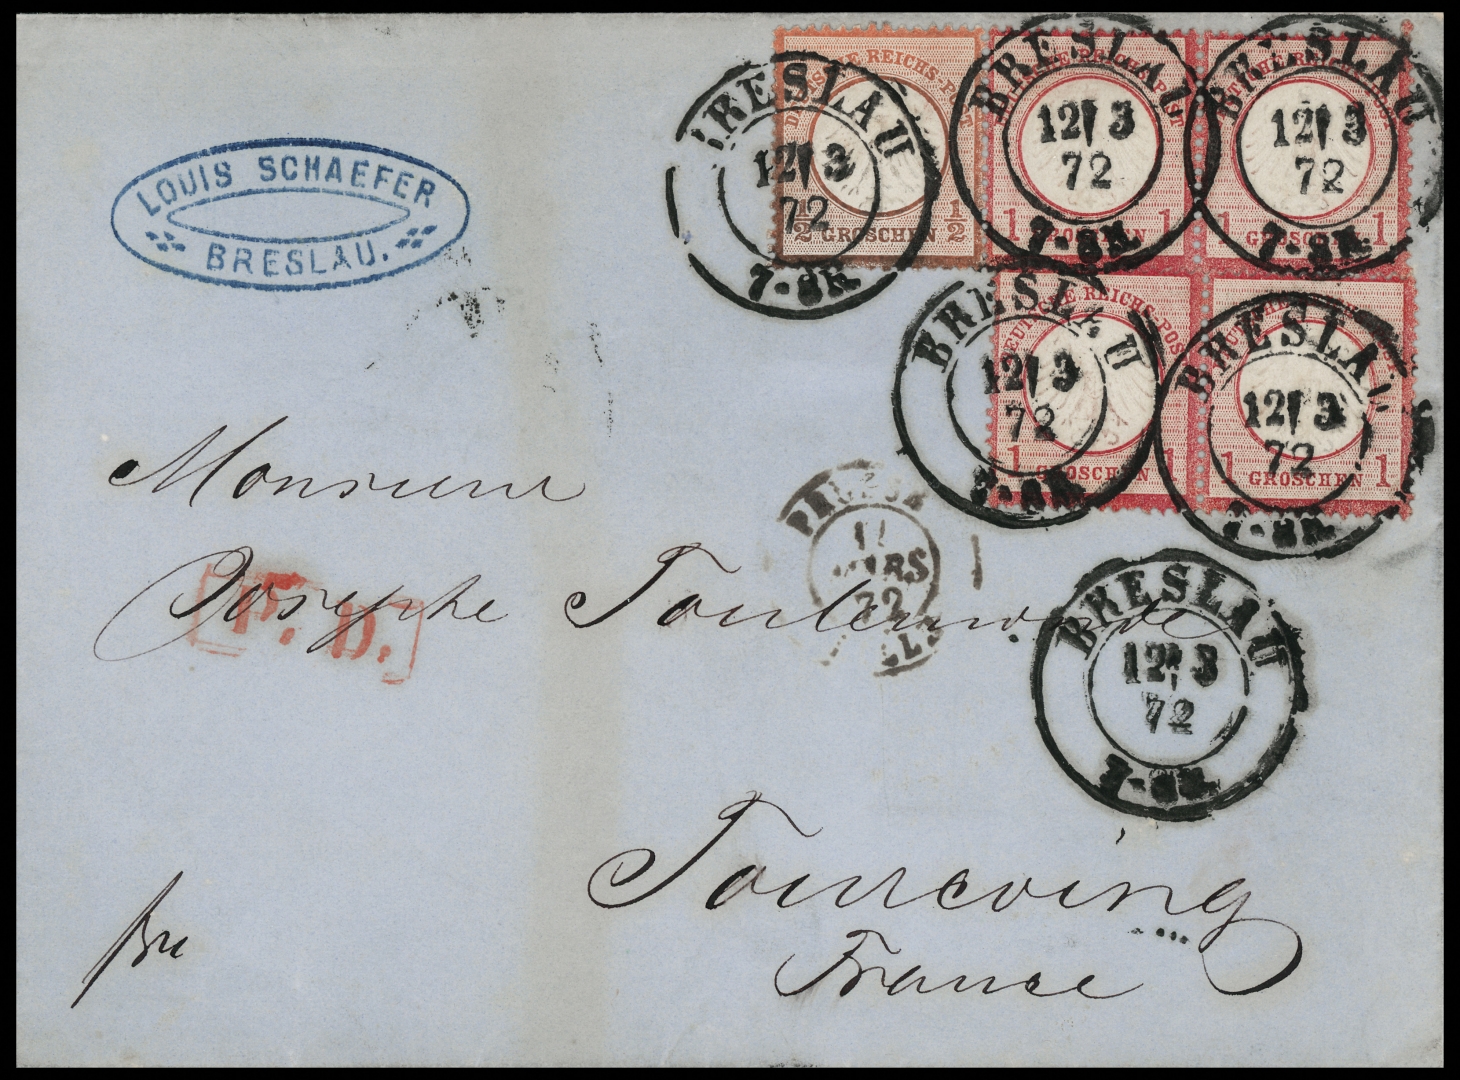 LOUIS SCHAEFER
BRESLAU.
DEUTSCHE REICHS-POST
½ ½
GROSCHEN
BRESLAU
12 3
72
7-8N.
DEUTSCHE REICHS-POST
1 1
GROSCHEN
BRESLAU
12 3
72
7-8N.
DEUTSCHE REICHS-POST
1 1
GROSCHEN
BRESLAU
12 3
72
7-8N.
DEUTSCHE REICHS-POST
1 1
GROSCHEN
BRESLAU
12 3
72
7-8N.
DEUTSCHE REICHS-POST
1 1
GROSCHEN
BRESLAU
12 3
72
7-8N.
Monsieur
PRUSSE
MARS
72
Josephe Toulemonde
P. D.
BRESLAU
12 3
72
7-8N.
Tourcoing
France